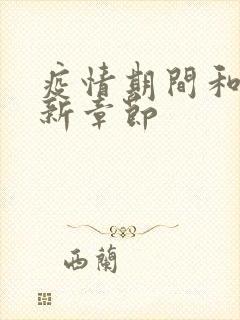 疫情期間和
新章節
西蘭